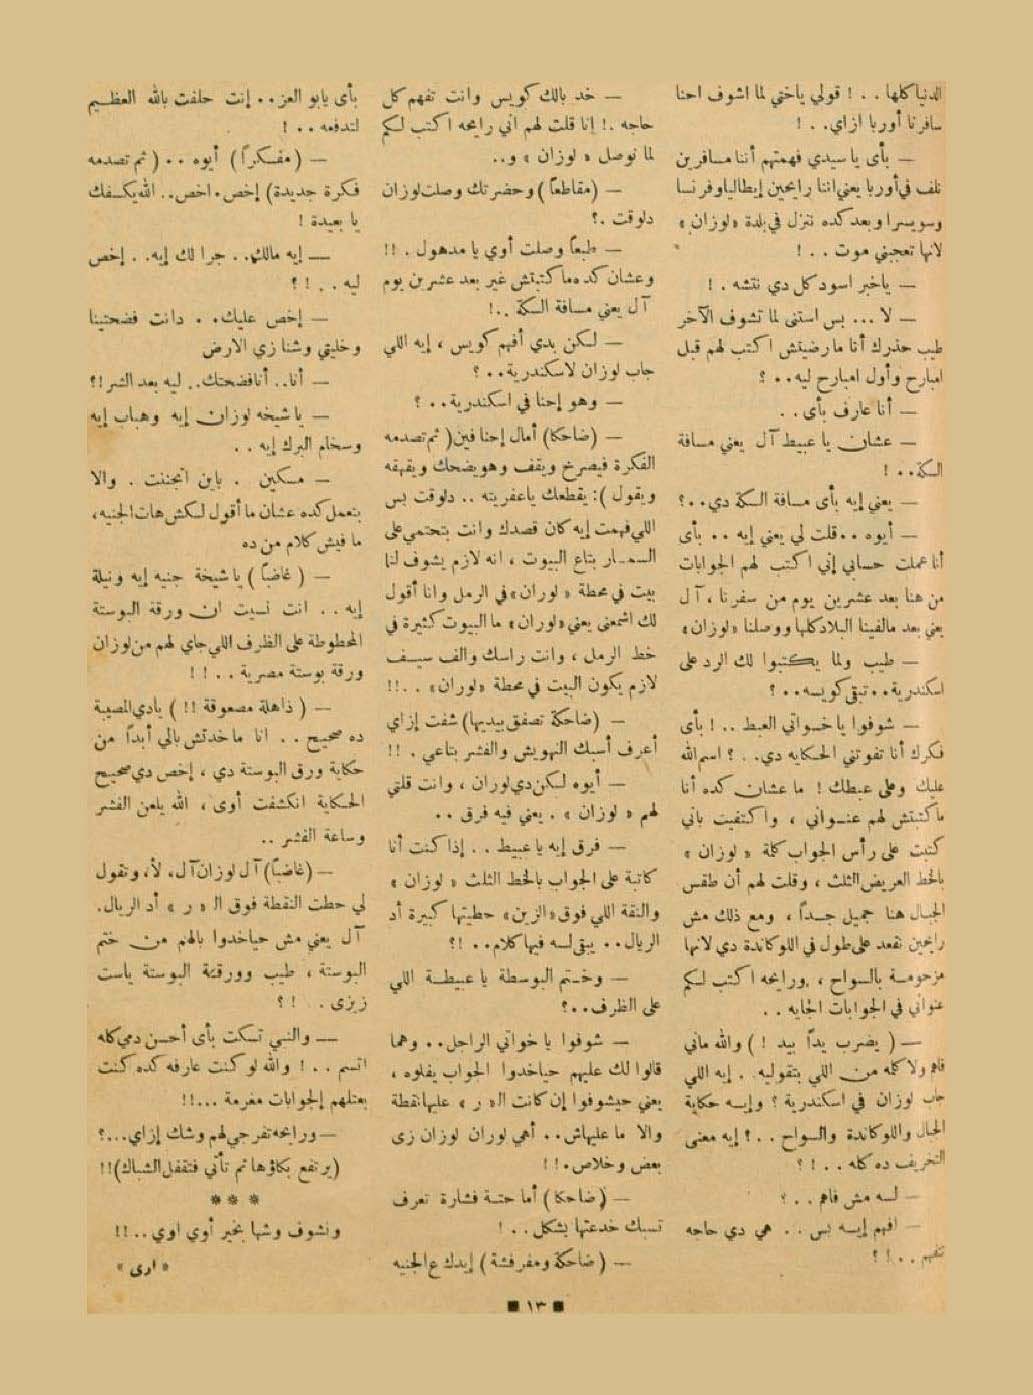 الدنيا كلها . . ! قولي ياختي لما اشوف احنا
سافرنا أوربا ازاي . . !
— بأى يا سيدي فهمتهم أننا مسافرين
نلف في أوربا يعني اننا رايحين إيطاليا وفرنسا
وسويسرا وبعد كده ننزل في بلدة « لوزان »
لانها تعجبني موت . . !
— ياخبر اسود كل دي نتشه . !
— لا ... بس استنى لما تشوف الآخر
طيب حذرك أنا مارضيتش اكتب لهم قبل
امبارح وأول امبارح ليه . . ؟
— أنا عارف بأى . .
— عشان يا عبيط آل يعني مسافة
السكة . . !
— يعني إيه بأى مسافة السكة دي . . ؟
— أيوه . . قلت لي يعني إيه . . بأى
أنا عملت حسابي إني اكتب لهم الجوابات
من هنا بعد عشرين يوم من سفرنا ، آل
يعني بعد مالفينا البلاد كلها ووصلنا « لوزان »
— طيب ولما يكتبوا لك الرد على
اسكندرية . . تبقى كويسه . . ؟
— شوفوا يا خواتي العبط . . ! بأى
فكرك أنا تفوتني الحكايه دي . . ؟ اسم الله
عليك وعلى عبطك ! ما عشان كده أنا
ماكتبتش لهم عنواني ، واكتفيت باني
كتبت على رأس الجواب كلمة « لوزان »
بالخط العريض الثلث ، وقلت لهم أن طقس
الجبال هنا جميل جداً ، ومع ذلك مش
رايحين نقعد على طول في اللوكاندة دي لانها
مزحومة بالسواح ، ورايحه اكتب لكم
عنواني في الجوابات الجايه . .
— ( يضرب يداً بيد ! ) والله ماني
فاهم ولا كله من اللي بتقوليه . إيه اللي
جاب لوزان في اسكندرية ؟ وإيه حكاية
الجبال واللوكاندة والسواح . . ؟ إيه معنى
التخريف ده كله . . ! ؟
— لسه مش فاهم . . ؟
— افهم إيه بس . . هي دي حاجه
تتفهم . . ! ؟
— خد بالك كويس وانت تفهم كل
حاجه . ! إنا قلت لهم اني رايحه اكتب لكم
لما نوصل « لوزان » و . .
— ( مقاطعاً ) وحضرتك وصلت لوزان
دلوقت . ؟
— طبعاً وصلت أوي يا مدهول . !!
وعشان كده ماكتبتش غير بعد عشرين يوم
آل يعني مسافة السكة . . !
— لكن بدي أفهم كويس ، إيه اللي
جاب لوزان لاسكندرية . . ؟
— وهو إحنا في اسكندرية . . ؟
— ( ضاحكا ) أمال إحنا فين ( ثم تصدمه
الفكرة فيصرخ ويقف وهو يضحك ويقهقه
ويقول ) : يقطعك ياعفريته . . دلوقت بس
اللي فهمت إيه كان قصدك وانت بتحتمي على
السمسار بتاع البيوت ، انه لازم يشوف لنا
بيت في محطة « لوران » في الرمل وانا أقول
لك اشمعنى يعني « لوران » ما البيوت كثيرة في
خط الرمل ، وانت راسك والف سيف
لازم يكون البيت في محطة « لوران » . . !!
— ( ضاحكة تصفق بيديها ) شفت إزاي
أعرف أسبك التهويش والفشر بتاعي . !!
— أيوه لكن دي لوران ، وانت قلتي
لهم « لوزان » . يعني فيه فرق . .
— فرق إيه يا عبيط . . إذا كنت أنا
كاتبة على الجواب بالخط الثلث « لوزان »
والنقة اللي فوق « الزين » حطيتها كبيرة أد
الريال . . يبقى لسه فيها كلام . . !؟
— وختم البوسطة يا عبيطة اللي
على الظرف . . ؟
— شوفوا يا خواتي الراجل . . وهما
قالوا لك عليهم حياخدوا الجواب يفلوه ،
يعني حيشوفوا إن كانت ال « ر » عليها نقطة
والا ما عليهاش . . أهي لوران لوزان زى
بعض وخلاص . !!
— ( ضاحكا ) أما حتة فشارة تعرف
تسبك خدعتها بشكل . . !
— ( ضاحكة ومفرفشة ) إيدك ع الجنيه
بأى يابو العز . . إنت حلفت بالله العظيم
لتدفعه . . !
— ( مفكراً ) أيوه . . ( ثم تصدمه
فكرة جديدة ) إخص . اخص . . الله يكسفك
يا بعيدة !
— إيه مالك . . جرا لك إيه . . إخص
ليه . . ! ؟
— إخص عليك . . دانت فضحتينا
وخليتي وشنا زي الارض
— أنا . . أنا فضحتك . . ليه بعد الشر !؟
— يا شيخه لوزان إيه وهباب إيه
وسخام البرك إيه . .
— مسكين . باين اتجننت . والا
بتعمل كده عشان ما أقول لكش هات الجنيه ،
ما فيش كلام من ده
— ( غاضباً ) يا شيخة جنيه إيه ونيلة
إيه . . انت نسيت ان ورقة البوستة
المحطوطة على الظرف اللي جاي لهم من لوزان
ورقة بوستة مصرية . . !!
— ( ذاهلة مصعوقة !! ) يادي المصيبة
ده صحيح . . انا ماخدتش بالي أبداً من
حكاية ورق البوستة دي ، إخص دي صحيح
الحكاية انكشفت أوى ، الله يلعن الفشر
وساعة الفشر . .
— ( غاضباً ) آل لوزان آل ، لأ ، وتقول
لي حطت النقطة فوق ال « ر » أد الريال .
آل يعني مش حياخدوا بالهم من ختم
البوستة ، طيب وورقة البوستة ياست
زيزى . . ! ؟
— والنبي تسكت بأى أحسن دمي كله
اتسم . . ! والله لو كنت عارفه كده كنت
بعتلهم الجوابات مغرمة . . . !!
— ورايحه تفرجي لهم وشك إزاي . . . ؟
( يرتفع بكاؤها ثم تأتي فتقفل الشباك ) !!
* * *
ونشوف وشها بخير أوي اوي . . !!
« ارى »
■ ١٣ ■